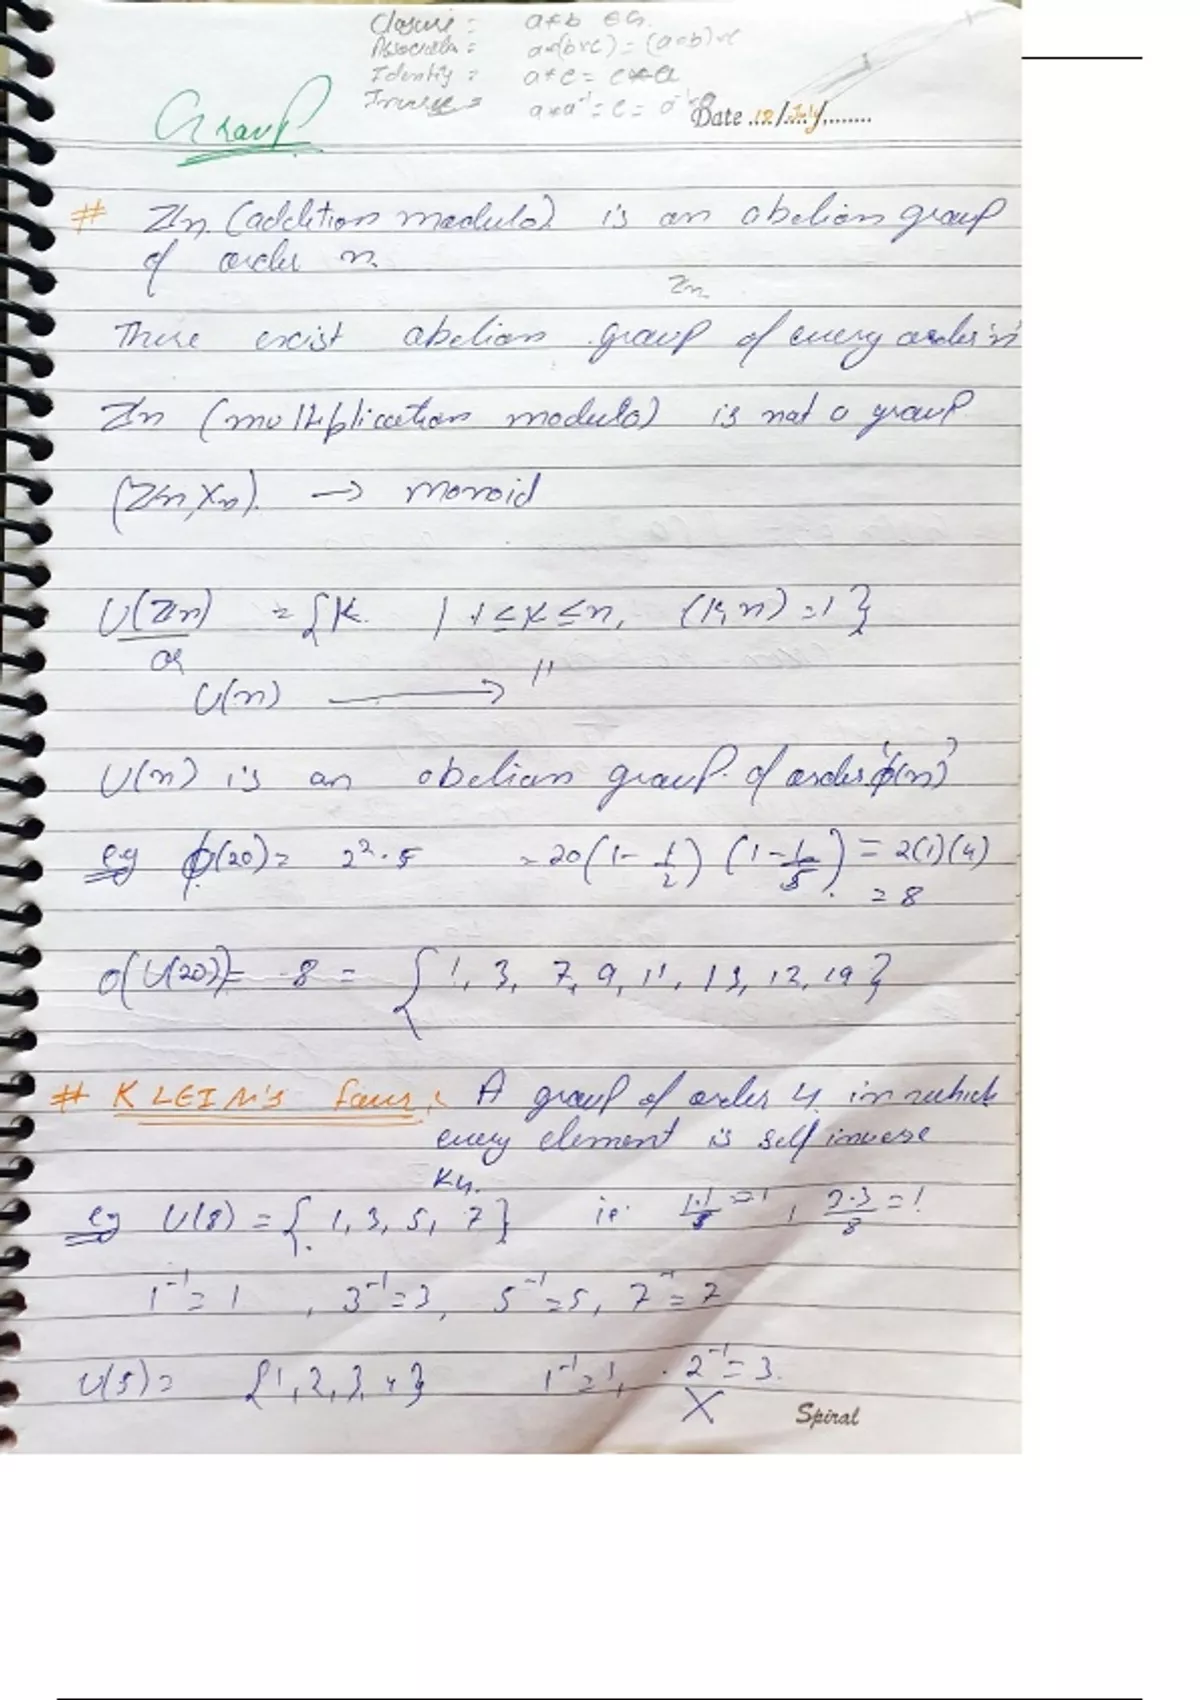 Closure : a*b ∈ G.
Associativ = a*(b*c) = (a*b)*c
Identity = a*e = e*a
Inverse = a*a⁻¹ = e = a⁻¹*a
Group
Date 18/July/........
# Zn (addition modulo) is an abelian group
of order n.
Zn
There exist abelian group of every order 'n'
Zn (multiplication modulo) is not a group
(Zn, Xn). → monoid
U(Zn) = {K. | 1≤K≤n, (K, n) = 1}
or
U(n) → "
U(n) is an abelian group of order 'ϕ(n)'
eg ϕ(20) = 2² · 5 = 20(1 - 1/2) (1 - 1/5) = 2(1)(4)
= 8
o(U(20)) = 8 = {1, 3, 7, 9, 11, 13, 17, 19}
# KLEIN's four : A group of order 4 in which
every element is self inverse
K4.
eg U(8) = {1, 3, 5, 7} ie. 1·1/8 = 1, 3·3/8 = 1
1⁻¹ = 1, 3⁻¹ = 3, 5⁻¹ = 5, 7⁻¹ = 7
U(5) = {1, 2, 3, 4} 1⁻¹ = 1, 2⁻¹ = 3.
X
Spiral